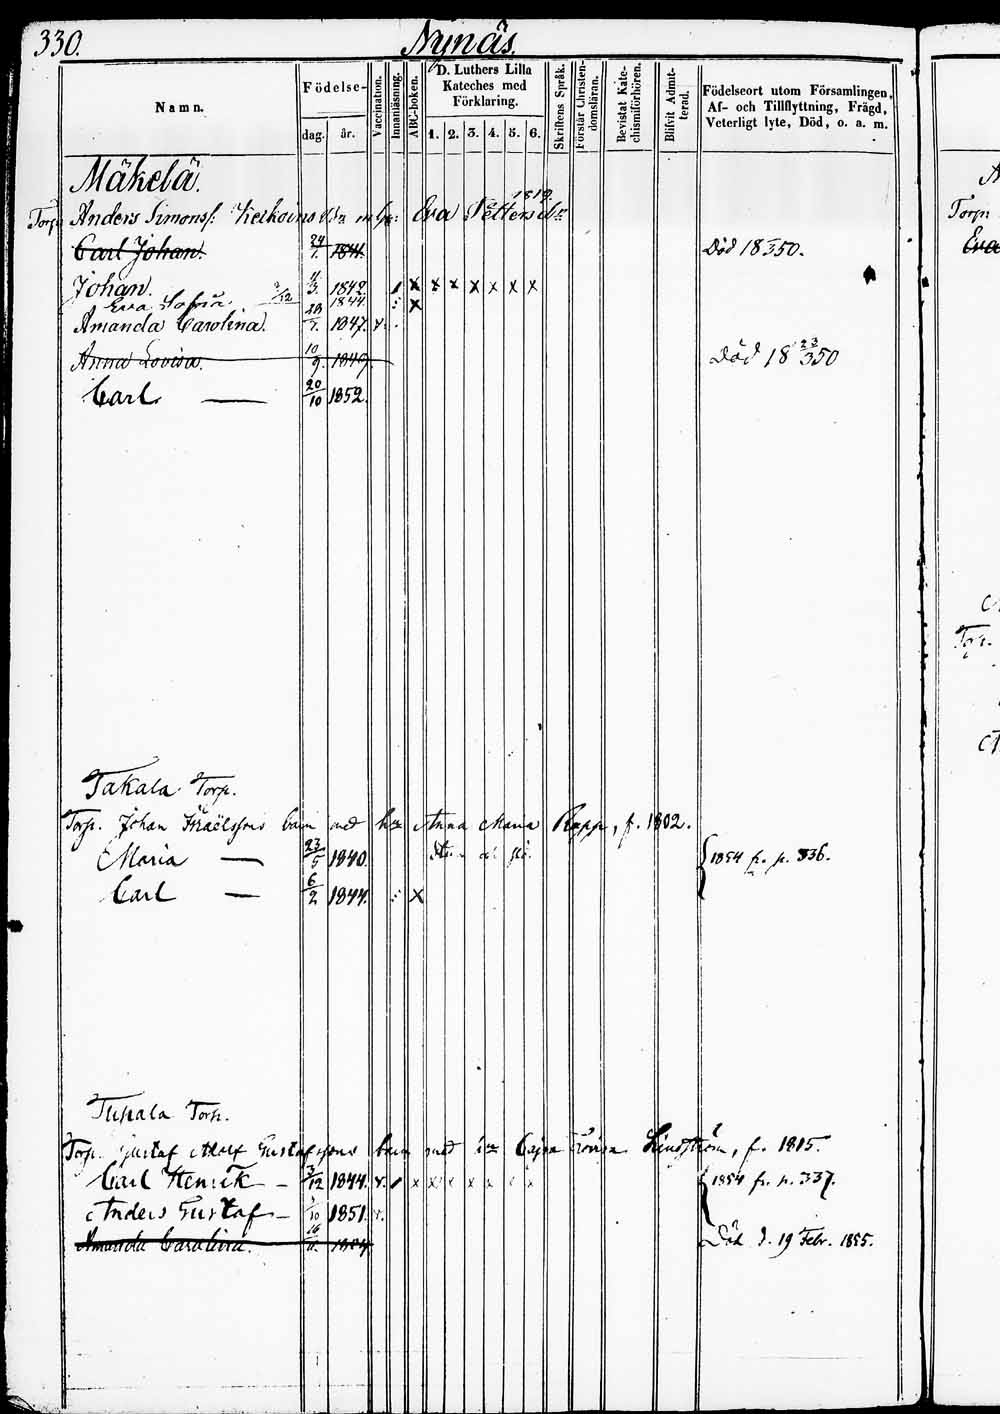 330.
Nynäs.
Namn.
Födelse-
dag.
år.
Vaccination.
Innanläsning.
ABC-boken.
D. Luthers Lilla
Kateches med
Förklaring.
1. 2. 3. 4. 5. 6.
Skriftens Språk.
Förstår Christen-
domsläran.
Bevistat Kate-
chismiförhören.
Blifvit Admit-
terad.
Födelseort utom Församlingen,
Af- och Tillflyttning, Frägd,
Veterligt lyte, Död, o. a. m.
Mäkelä.
1819.
Torp. Anders Simonss: Eva Petters
Carl Johan. 24/1. 1841 Död 18 350.
Johan. 4/3. 1842. x x x x x x x
Eva Sofia 2/12 1844 x
Amanda Carolina. 28/7. 1847. v.
Anna Lovisa. 10/9. 1849. Död 18 23/3 50
Carl. — 20/10 1852.
Takala Torp.
Torp. Johan Israëlssons barn med h:u Anna Maria Rapp, f. 1802.
Maria — 23/5 1840. 1854 fr. p. 336.
Carl — 6/2 1844. x
Tupala Torp.
Torp. Gustaf Adolf Gustafssons barn med Cajsa Lovisa Lindström, f. 1815.
Carl Henrik — 3/12 1844. v. x x x x x x 1854 fr. p. 337.
Anders Gustaf — 1/10 1851. v.
Amanda Carolina. 16/11. 1854 Död d. 19 Febr. 1855.
Torp.
Eva
Torp.